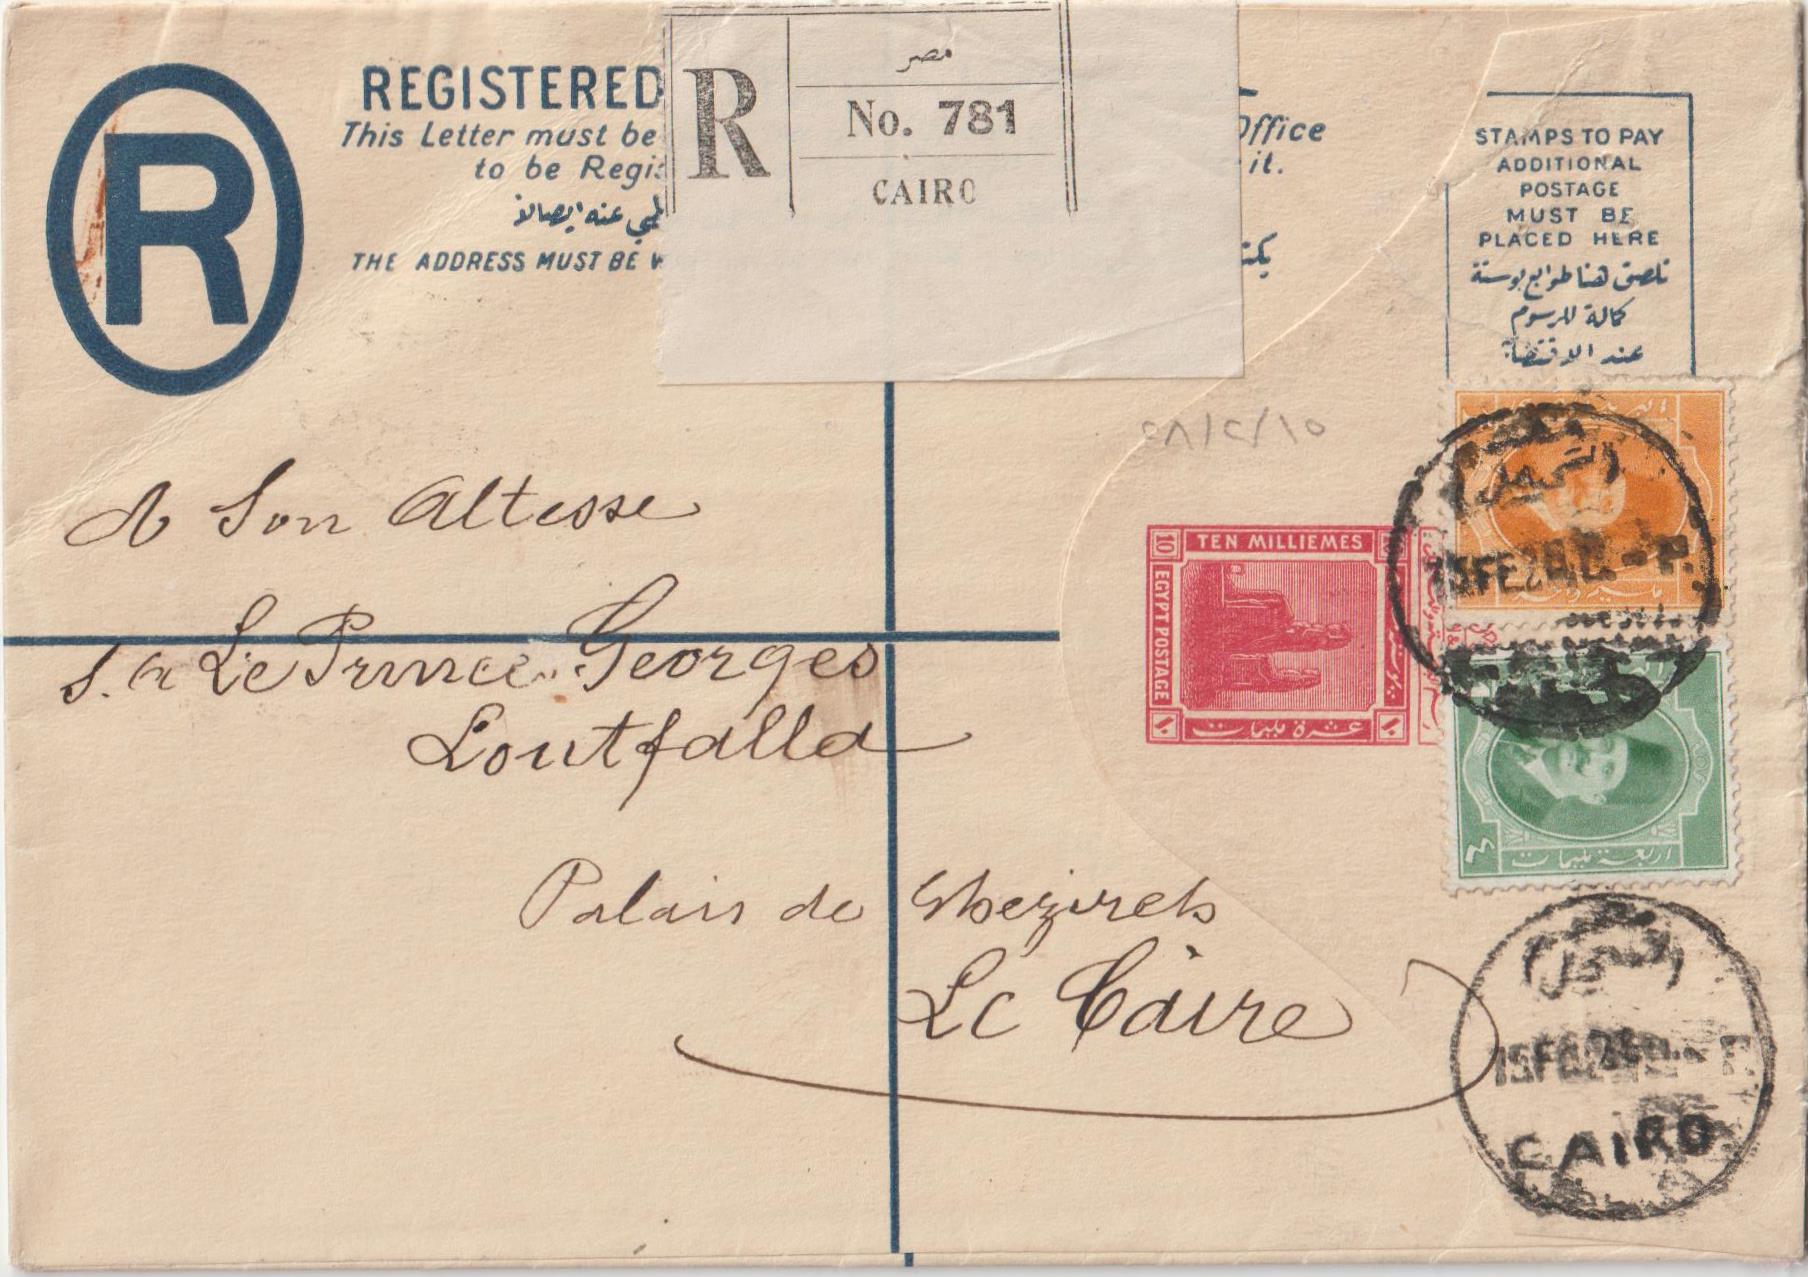 R
REGISTERED
This Letter must be
to be Regis
عنه إيصالا
THE ADDRESS MUST BE W
R
مصر
No. 781
CAIRO
Office
it.
STAMPS TO PAY
ADDITIONAL
POSTAGE
MUST BE
PLACED HERE
تلصق هنا طوابع بوستة
كمالة للرسوم
عند الاقتضاء
٢٨/٢/١٥
A Son Altesse
S. A Le Prince Georges
Loutfalla
Palais de Ghezireh
Le Caire
10 TEN MILLIEMES
EGYPT POSTAGE
١٠ عشرة مليمات ١٠
15 FE 28
٤ اربعة مليمات
15 FE 28
CAIRO